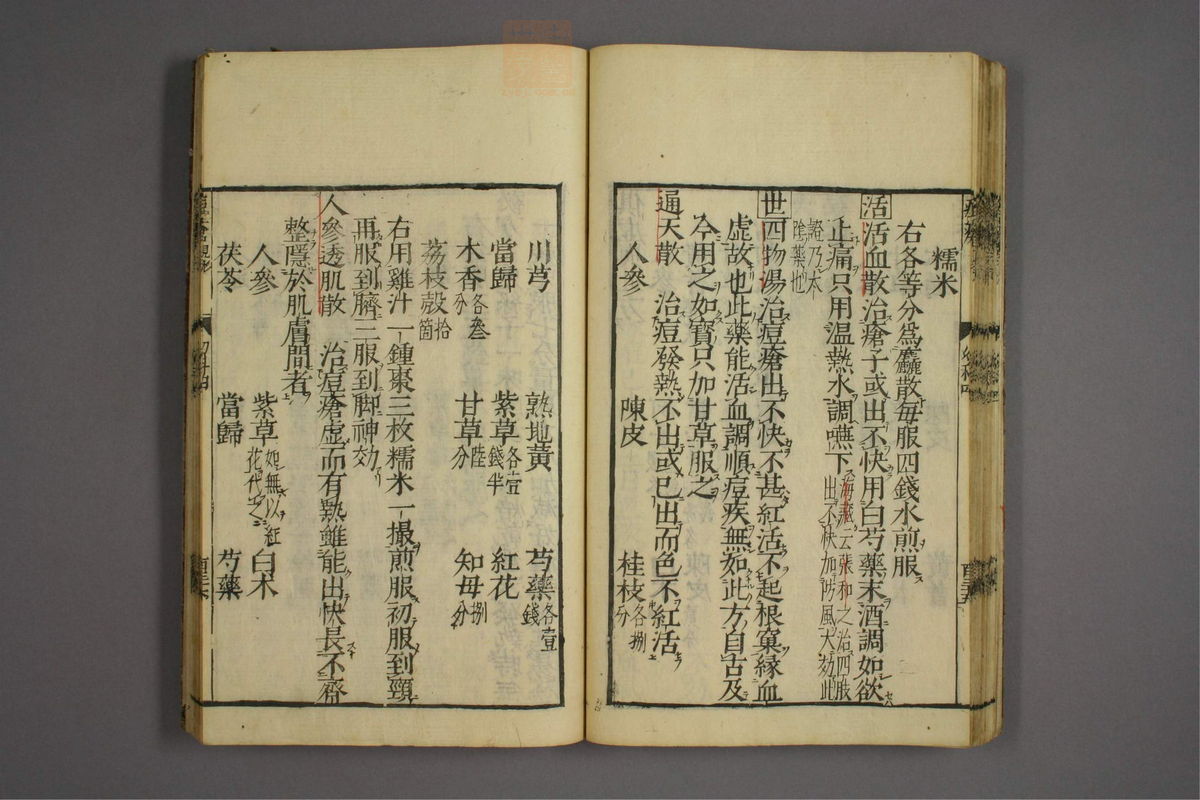 糯米
右各等分為麤散毎服四錢水煎服
活活血散治瘡子或出不快用白芍藥末酒調如欲
止痛只用温熱水調嚥下海藏云張和之治四肢
出不快加防風大効此
證乃太
陰藥也
世四物湯治痘瘡出不快不甚紅活不起根窠縁血
虚故也此藥能活血調順痘疾無如此方自古及
今用之如寳只加甘草服之
通天散 治痘發熱不出或已出而色不紅活
人參 陳皮 桂枝各捌分
川芎 熟地黄 芍藥各壹錢
當歸 紫草各壹錢半 紅花
木香各叁分 甘草陸分 知母捌分
荔枝殻拾箇
右用雞汁一鍾棗三枚糯米一撮煎服初服到頸
再服到臍三服到脚神効
人參透肌散 治痘瘡虚而有熱雖能出快長不齊
整隱於肌膚間者
人參 紫草如無以紅花代之 白朮
茯苓 當歸 芍藥